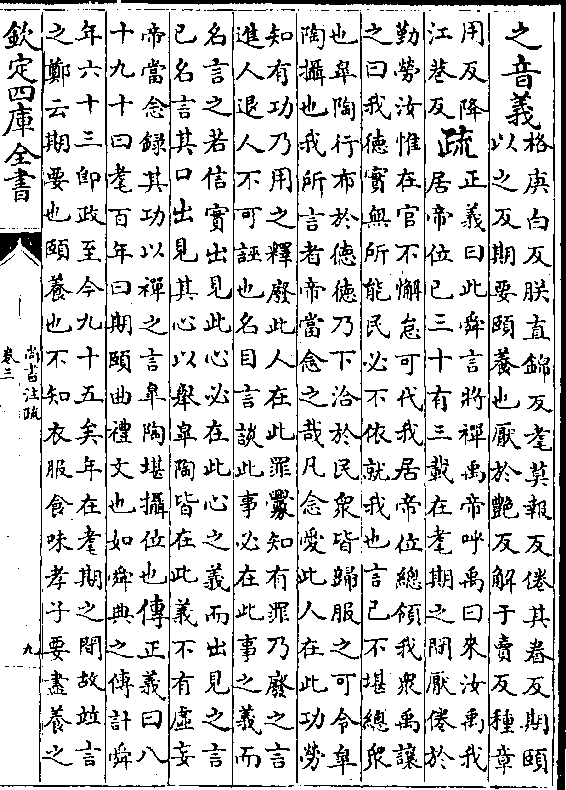 之音義格庚白反朕直錦反耄莫報反倦其眷反期頤
以之反期要頤養也厭於艶反解于賣反種章
用反降
江巷反
疏正義曰此舜言將禪禹帝呼禹曰來汝禹我
居帝位已三十有三載在耄期之間厭倦於
勤勞汝惟在官不懈怠可代我居帝位總領我衆禹讓
之曰我德實無所能民必不依就我也言己不堪總衆
也臯陶行布於德德乃下洽於民衆皆歸服之可令臯
陶攝也我所言者帝當念之哉凡念愛此人在此功勞
知有功乃用之釋廢此人在此罪釁知有罪乃廢之言
進人退人不可誣也名目言談此事必在此事之義而
名言之若信實出見此心必在此心之義而出見之言
已名言其口出見其心以舉臯陶皆在此義不有虛妄
帝當念録其功以禪之言臯陶堪攝位也傳正義曰八
十九十曰耄百年曰期頤曲禮文也如舜典之傳計舜
年六十三即政至今九十五矣年在耄期之間故竝言
之鄭云期要也頤養也不知衣服食味孝子要盡養之
欽定四庫全書
尚書注疏
卷三
九